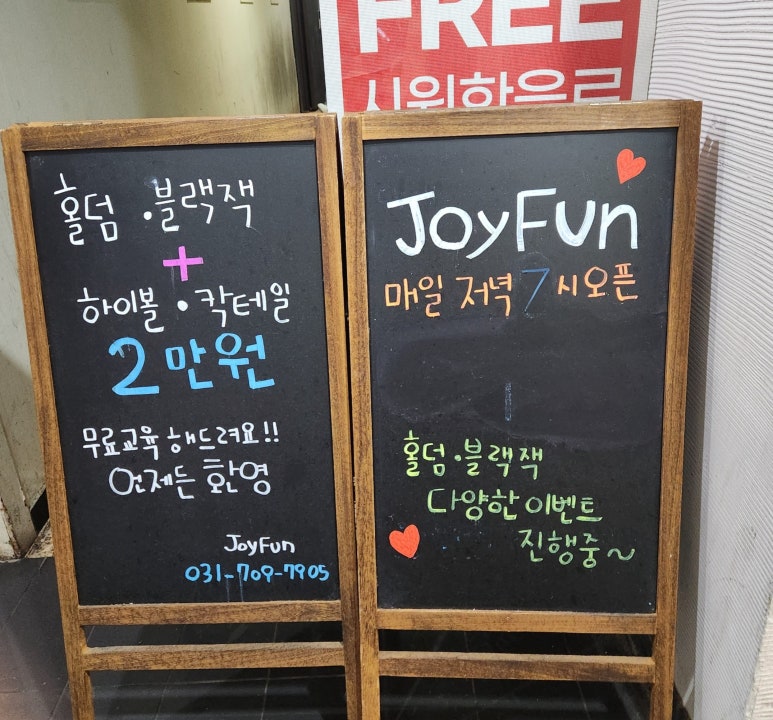 FREE
시원한음료
홀덤 · 블랙잭
+
하이볼 · 칵테일
2만원
무료교육 해드려요!!
언제든 환영
JoyFun
031-709-7905
JoyFun
매일 저녁 7시오픈
홀덤 · 블랙잭
다양한 이벤트
진행중~